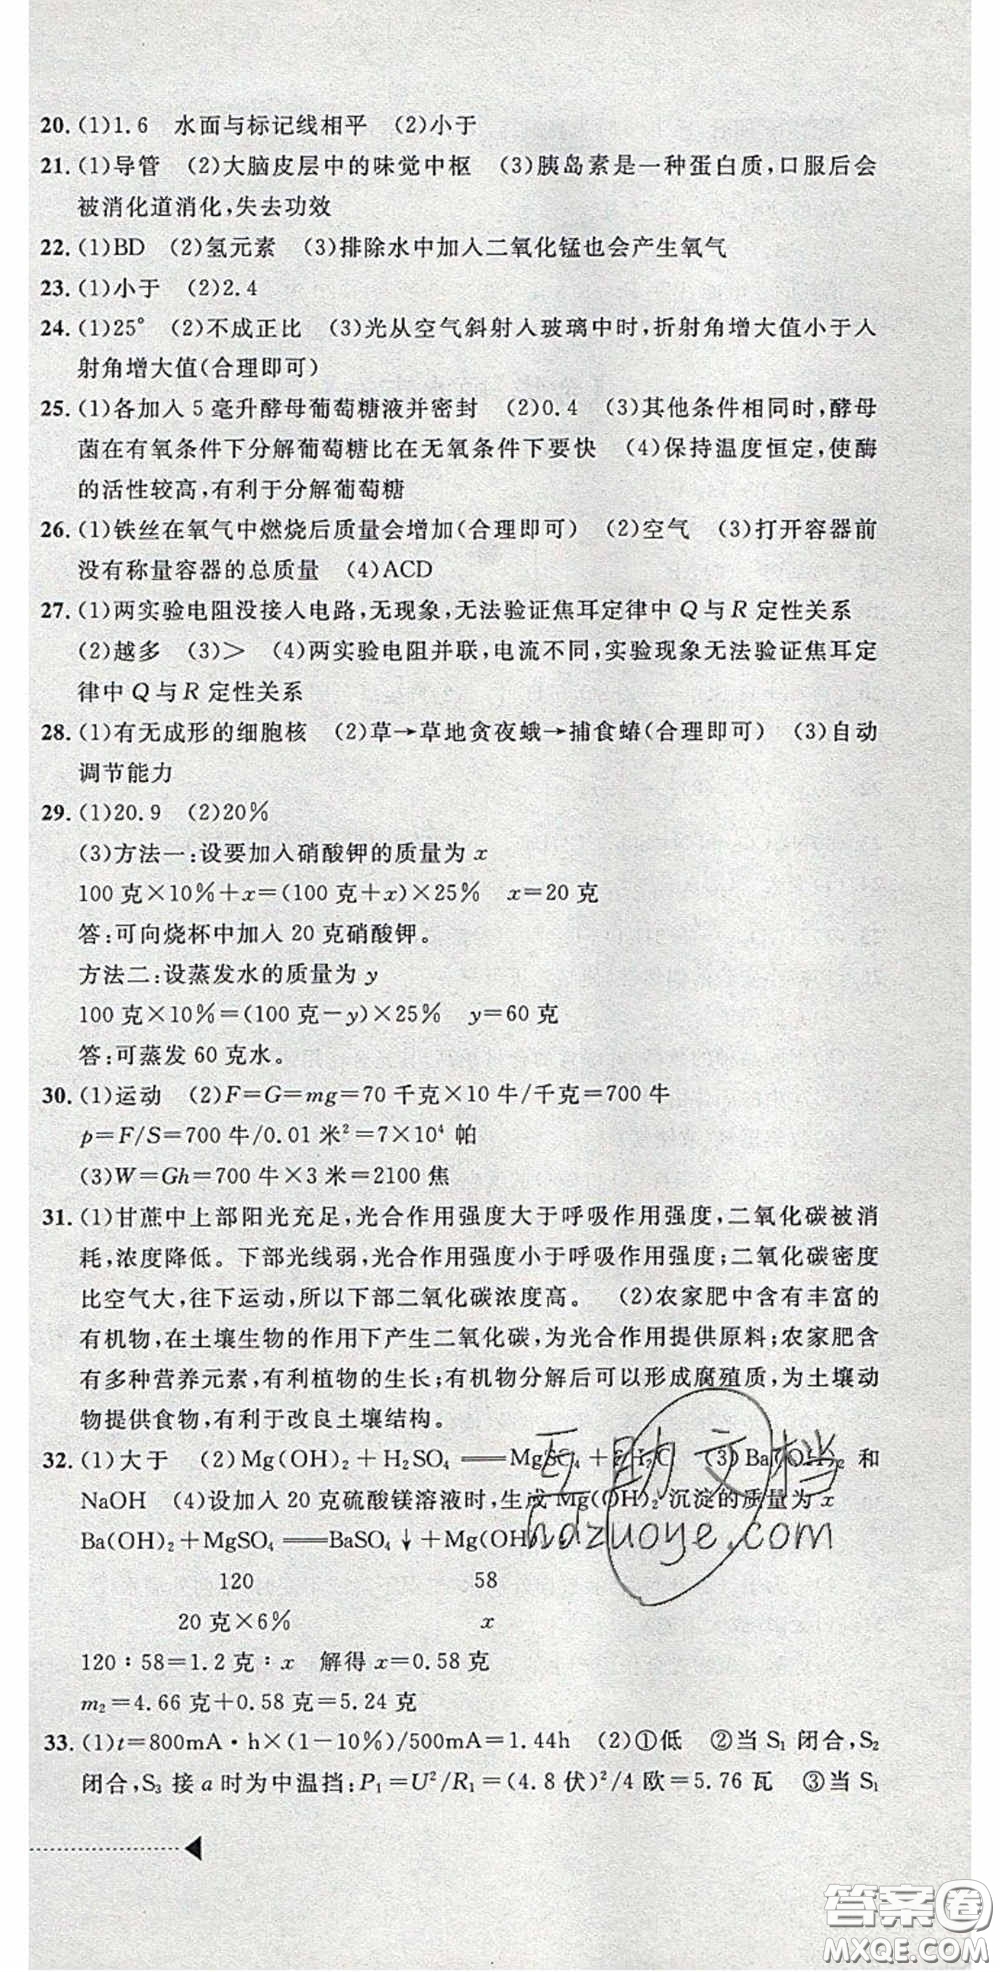 20. (1)1.6　水面与标记线相平　(2)小于
21. (1)导管　(2)大脑皮层中的味觉中枢　(3)胰岛素是一种蛋白质,口服后会
被消化道消化,失去功效
22. (1)BD　(2)氢元素　(3)排除水中加入二氧化锰也会产生氧气
23. (1)小于　(2)2.4
24. (1)25°　(2)不成正比　(3)光从空气斜射入玻璃中时,折射角增大值小于入
射角增大值(合理即可)
25. (1)各加入 5 毫升酵母葡萄糖液并密封　(2)0.4　(3)其他条件相同时,酵母
菌在有氧条件下分解葡萄糖比在无氧条件下要快　(4)保持温度恒定,使酶
的活性较高,有利于分解葡萄糖
26. (1)铁丝在氧气中燃烧后质量会增加(合理即可)　(2)空气　(3)打开容器前
没有称量容器的总质量　(4)ACD
27. (1)两实验电阻没接入电路,无现象,无法验证焦耳定律中 Q 与 R 定性关系
(2)越多　(3)>　(4)两实验电阻并联,电流不同,实验现象无法验证焦耳定
律中 Q 与 R 定性关系
28. (1)有无成形的细胞核　(2)草→草地贪夜蛾→捕食蝽(合理即可)　(3)自动
调节能力
29. (1)20.9　(2)20%
(3)方法一:设要加入硝酸钾的质量为 x
100 克×10%+x=(100 克+x)×25%　x=20 克
答:可向烧杯中加入 20 克硝酸钾。
方法二:设蒸发水的质量为 y
100 克×10%=(100 克-y)×25%　y=60 克
答:可蒸发 60 克水。
30. (1)运动　(2)F=G=mg=70 千克×10 牛/千克=700 牛
p=F/S=700 牛/0.01 米²=7×10⁴ 帕
(3)W=Gh=700 牛×3 米=2100 焦
31. (1)甘蔗中上部阳光充足,光合作用强度大于呼吸作用强度,二氧化碳被消
耗,浓度降低。下部光线弱,光合作用强度小于呼吸作用强度;二氧化碳密度
比空气大,往下运动,所以下部二氧化碳浓度高。　(2)农家肥中含有丰富的
有机物,在土壤生物的作用下产生二氧化碳,为光合作用提供原料;农家肥含
有多种营养元素,有利植物的生长;有机物分解后可以形成腐殖质,为土壤动
物提供食物,有利于改良土壤结构。
32. (1)大于　(2)Mg(OH)₂+H₂SO₄══MgSO₄+2H₂O　(3)Ba(OH)₂ 和
NaOH　(4)设加入 20 克硫酸镁溶液时,生成 Mg(OH)₂ 沉淀的质量为 x
Ba(OH)₂+MgSO₄══BaSO₄↓+Mg(OH)₂↓
120　58
20 克×6%　x
120∶58=1.2 克∶x　解得 x=0.58 克
m₂=4.66 克+0.58 克=5.24 克
33. (1)t=800mA·h×(1-10%)/500mA=1.44h　(2)①低　②当 S₁ 闭合,S₂
闭合,S₃ 接 a 时为中温挡:P₁=U²/R₁=(4.8 伏)²/4 欧=5.76 瓦　③当 S₁
互助文档
hdzuoye.com
答案圈
MXQE.COM